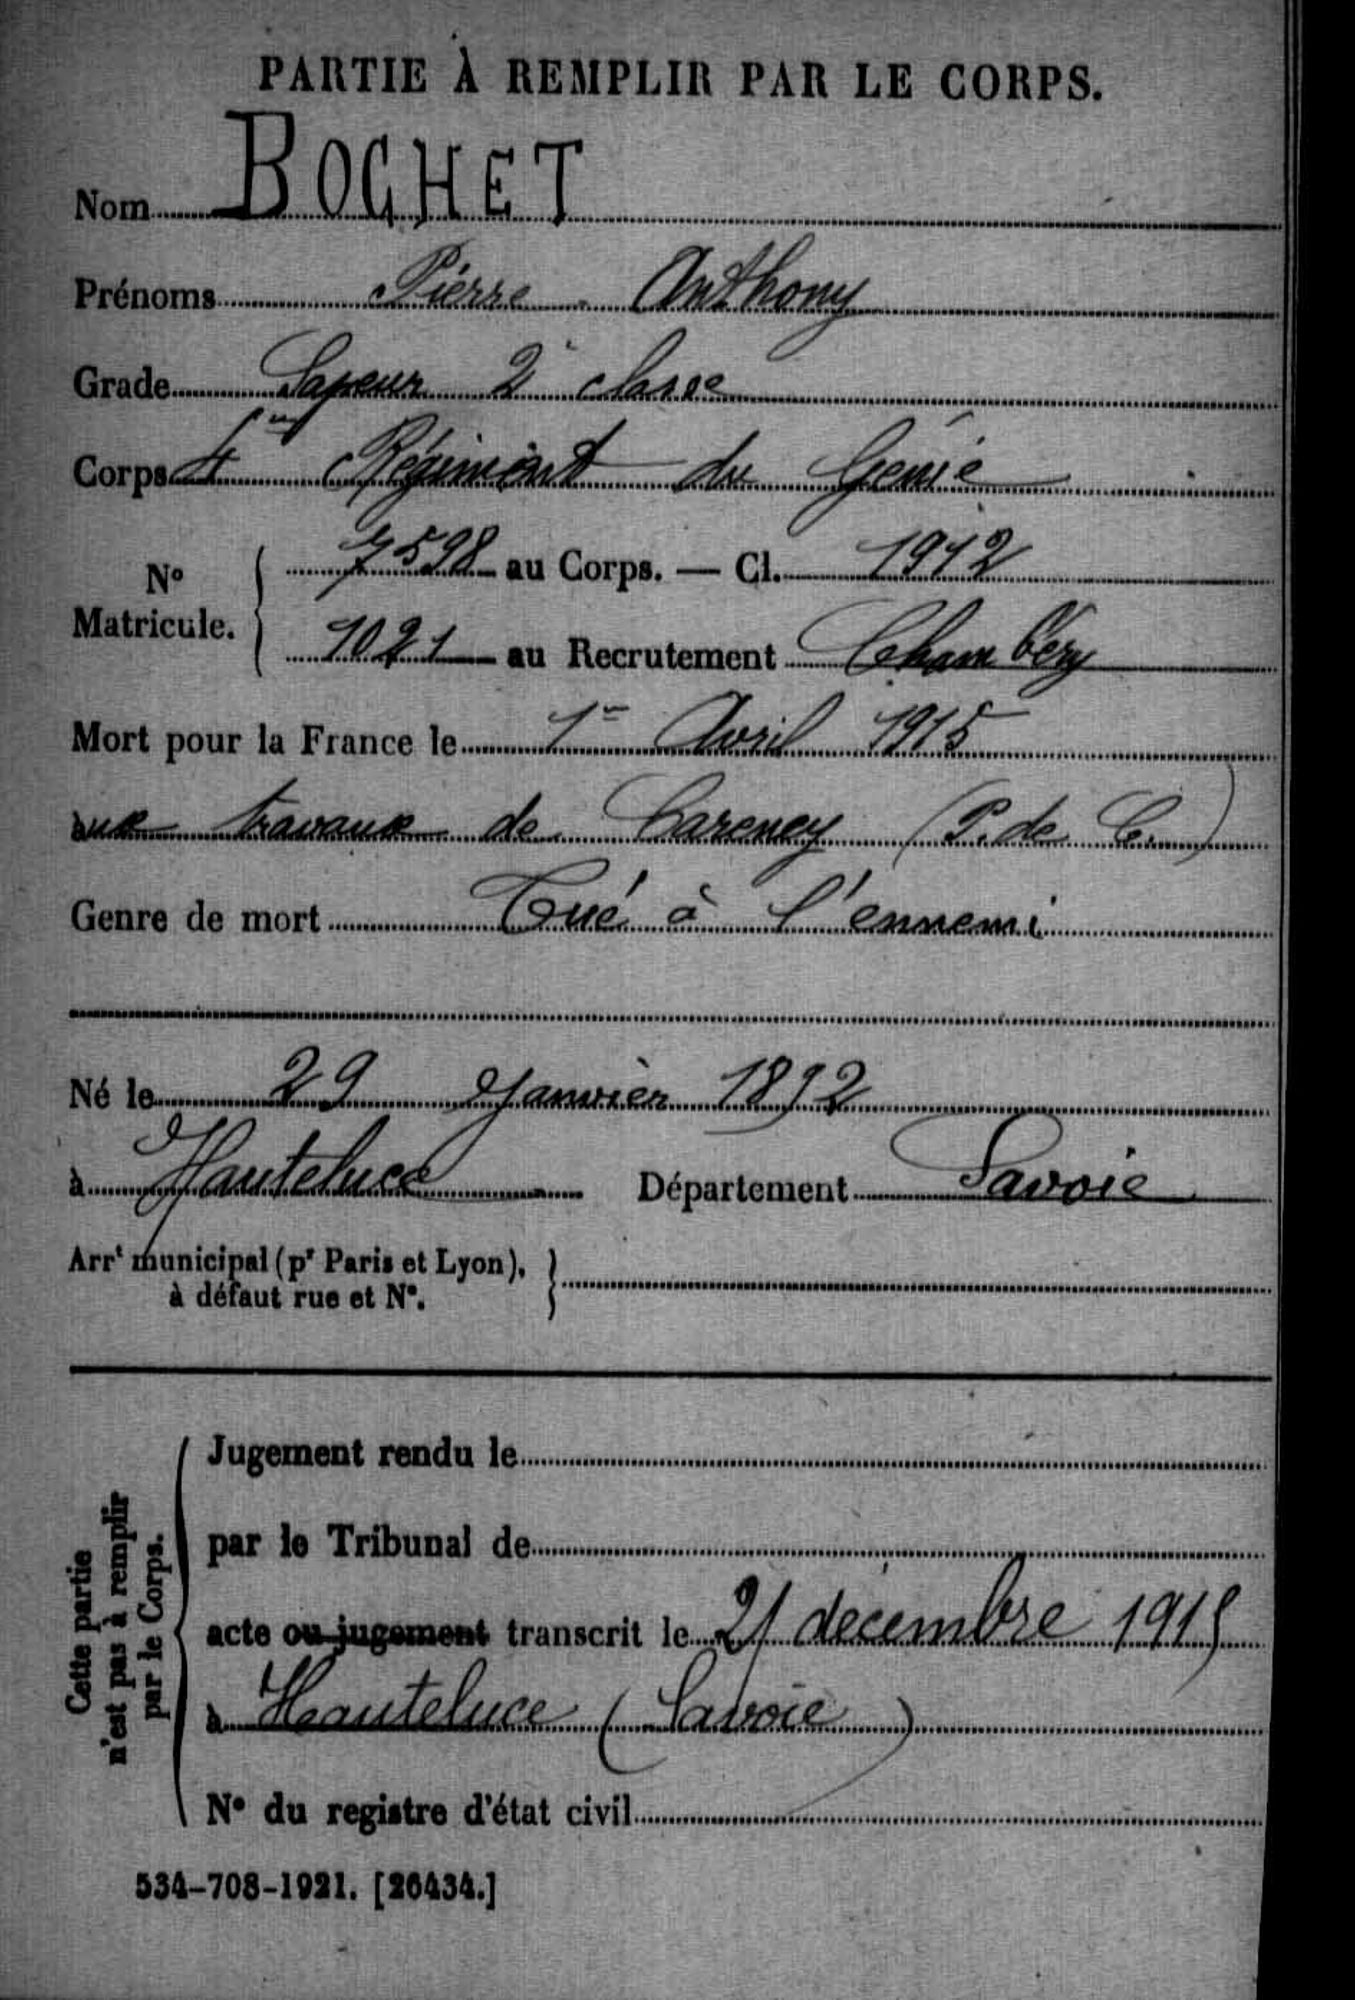 PARTIE À REMPLIR PAR LE CORPS.
Nom BOCHET
Prénoms Pierre Anthony
Grade Sapeur 2e classe
Corps 4me Régiment du Génie
No Matricule. 7598 au Corps. — Cl. 1912
1021 au Recrutement Chambéry
Mort pour la France le 1er Avril 1915
aux travaux de Carency (P. de C.)
Genre de mort Tué à l'ennemi
Né le 29 Janvier 1892
à Hauteluce Département Savoie
Arrt municipal (pr Paris et Lyon),
à défaut rue et No.
Cette partie
n'est pas à remplir
par le Corps.
Jugement rendu le
par le Tribunal de
acte ou jugement transcrit le 21 décembre 1915
à Hauteluce (Savoie)
No du registre d'état civil
534-708-1921. [26434.]